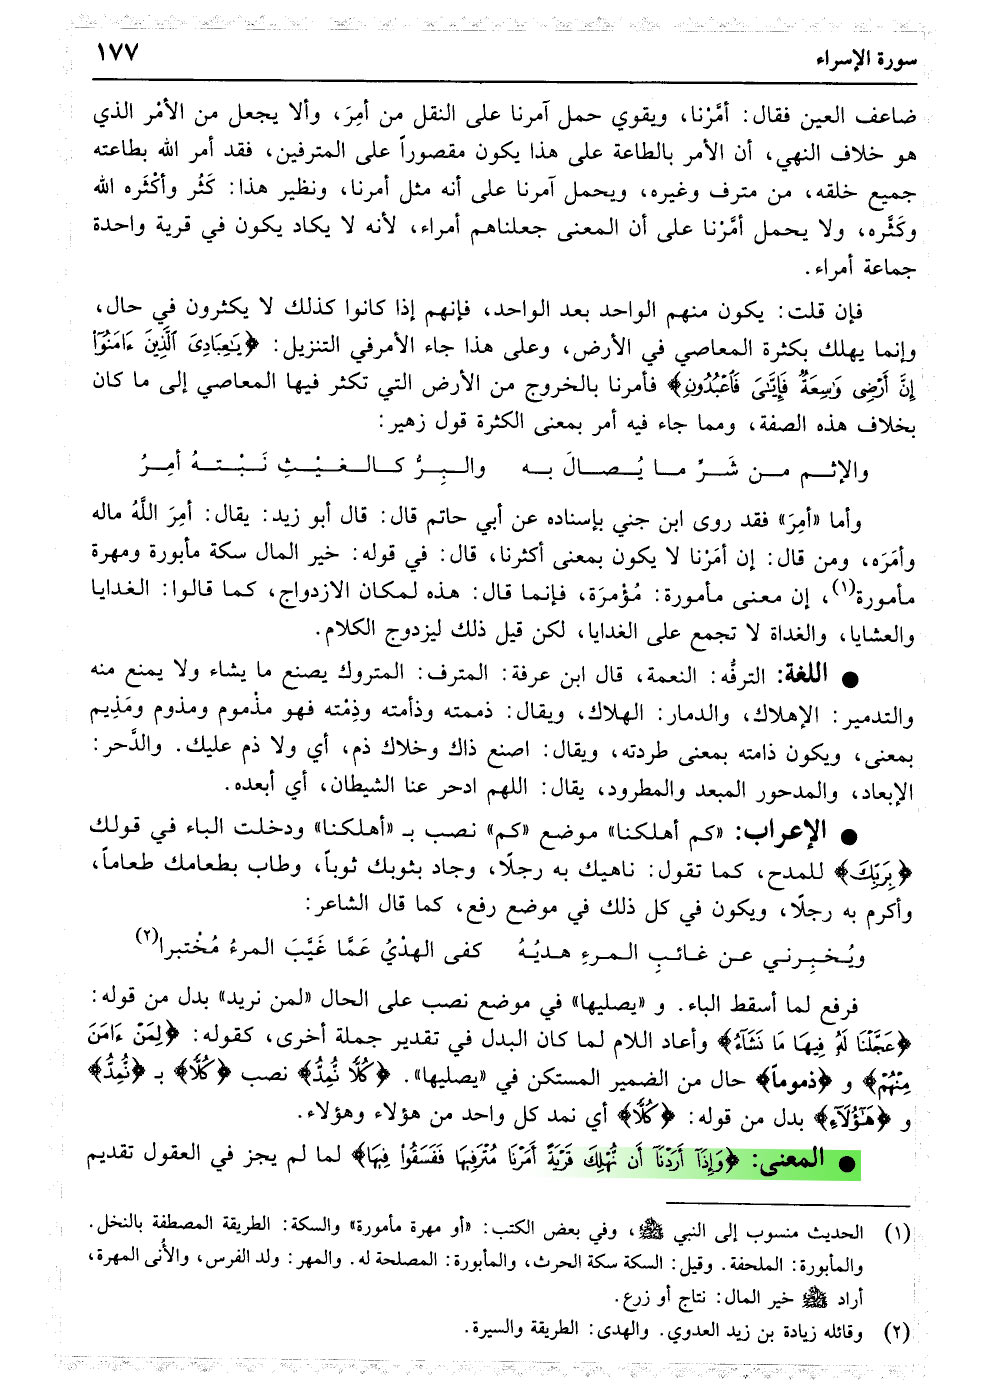 سورة الإسراء
١٧٧
ضاعف العين فقال: أمَّرْنا، ويقوي حمل آمرنا على النقل من أمِرَ، وألا يجعل من الأمْر الذي
هو خلاف النهي، أن الأمر بالطاعة على هذا يكون مقصوراً على المترفين، فقد أمر الله بطاعته
جميع خلقه، من مترف وغيره، ويحمل آمرنا على أنه مثل أمرنا، ونظير هذا: كَثُر وأكْثَره الله
وكَثَّره، ولا يحمل أمَّرْنا على أن المعنى جعلناهم أمراء، لأنه لا يكاد يكون في قرية واحدة
جماعة أمراء.
فإن قلت: يكون منهم الواحد بعد الواحد، فإنهم إذا كانوا كذلك لا يكثرون في حال،
وإنما يهلك بكثرة المعاصي في الأرض، وعلى هذا جاء الأمرفي التنزيل: ﴿يَٰعِبَادِىَ ٱلَّذِينَ ءَامَنُوٓا۟
إِنَّ أَرْضِى وَٰسِعَةٌ فَإِيَّٰىَ فَٱعْبُدُونِ﴾ فأمرنا بالخروج من الأرض التي تكثر فيها المعاصي إلى ما كان
بخلاف هذه الصفة، ومما جاء فيه أمر بمعنى الكثرة قول زهير:
والإثـم مـن شَـرِّ مـا يُـصـالَ بـه والـبِـرُّ كـالـغَـيْـثِ نَـبْـتـهُ أمِـرُ
وأما «أمِرَ» فقد روى ابن جني بإسناده عن أبي حاتم قال: قال أبو زيد: يقال: أمِرَ اللَّهُ ماله
وأمَرَه، ومن قال: إن أمَرْنا لا يكون بمعنى أكثرنا، قال: في قوله: خير المال سكة مأبورة ومهرة
مأمورة(١)، إن معنى مأمورة: مُؤْمرَة، فإنما قال: هذه لمكان الازدواج، كما قالوا: الغدايا
والعشايا، والغداة لا تجمع على الغدايا، لكن قيل ذلك ليزدوج الكلام.
● اللغة: الترفُّه: النعمة، قال ابن عرفة: المترف: المتروك يصنع ما يشاء ولا يمنع منه
والتدمير: الإهلاك، والدمار: الهلاك، ويقال: ذممته وذأمته وذِمْته فهو مذْموم ومذوم ومَذِيم
بمعنى، ويكون ذامته بمعنى طردته، ويقال: اصنع ذاك وخلاك ذم، أي ولا ذم عليك. والدَّحر:
الإبعاد، والمدحور المبعد والمطرود، يقال: اللهم ادحر عنا الشيطان، أي أبعده.
● الإعراب: «كم أهلكنا» موضع «كم» نصب بـ «أهلكنا» ودخلت الباء في قولك
﴿بِرَبِّكَ﴾ للمدح، كما تقول: ناهيك به رجلًا، وجاد بثوبك ثوباً، وطاب بطعامك طعاماً،
وأكرم به رجلًا، ويكون في كل ذلك في موضع رفع، كما قال الشاعر:
ويُـخـبِـرنـي عـن غـائـبِ الـمـرءِ هـديُـهُ كفى الهدْيُ عَمَّا غَيَّبَ المرءُ مُخْتبرا(٢)
فرفع لما أسقط الباء. و «يصليها» في موضع نصب على الحال «لمن نريد» بدل من قوله:
﴿عَجَّلْنَا لَهُۥ فِيهَا مَا نَشَآءُ﴾ وأعاد اللام لما كان البدل في تقدير جملة أخرى، كقوله: ﴿لِمَنْ ءَامَنَ
مِنْهُمْ﴾ و ﴿ذموماً﴾ حال من الضمير المستكن في «يصليها». ﴿كُلًّا نُّمِدُّ﴾ نصب ﴿كُلًّا﴾ بـ ﴿نُّمِدُّ﴾
و ﴿هَٰٓؤُلَآءِ﴾ بدل من قوله: ﴿كُلًّا﴾ أي نمد كل واحد من هؤلاء وهؤلاء.
● المعنى: ﴿وَإِذَآ أَرَدْنَآ أَن نُّهْلِكَ قَرْيَةً أَمَرْنَا مُتْرَفِيهَا فَفَسَقُوا۟ فِيهَا﴾ لما لم يجز في العقول تقديم
(١) الحديث منسوب إلى النبي ﷺ، وفي بعض الكتب: «أو مهرة مأمورة» والسكة: الطريقة المصطفة بالنخل.
والمأبورة: الملحفة. وقيل: السكة سكة الحرث، والمأبورة: المصلحة له. والمهر: ولد الفرس، والأنى المهرة،
أراد ﷺ خير المال: نتاج أو زرع.
(٢) وقائله زيادة بن زيد العدوي. والهدى: الطريقة والسيرة.